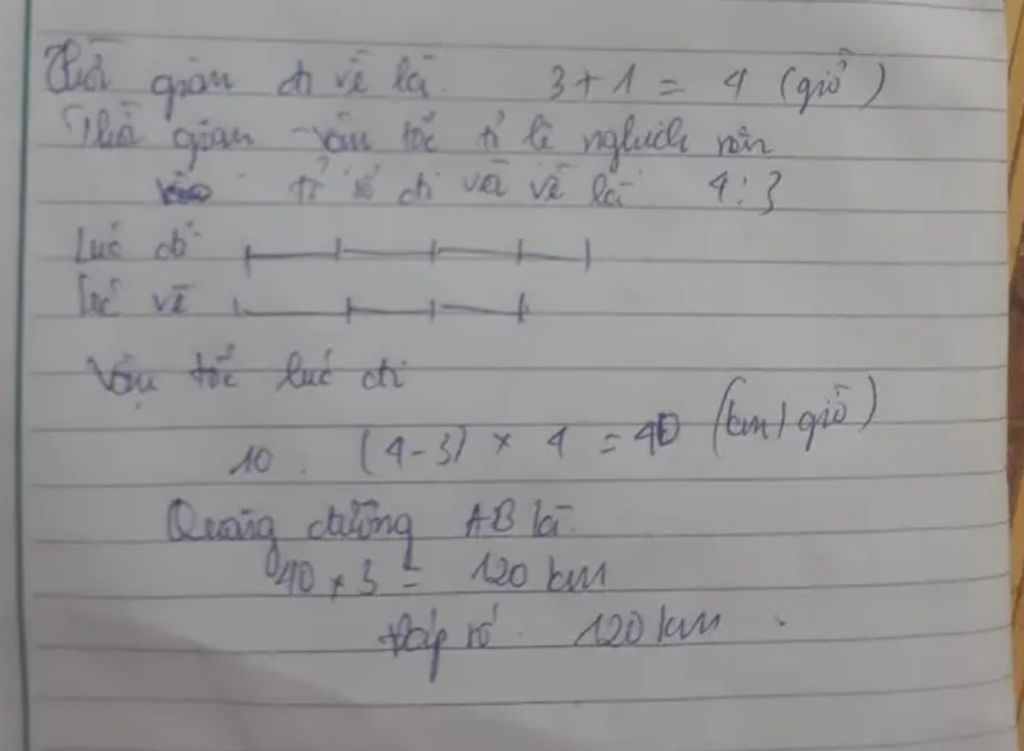 Thời gian đi về là 3 + 1 = 4 (giờ)
Thời gian vận tốc tỉ lệ nghịch nên
tỉ số đi và về là 4 : 3
Lúc đi
Lúc về
Vận tốc lúc đi
10 : (4 - 3) × 4 = 40 (km/giờ)
Quãng đường AB là
40 × 3 = 120 km
Đáp số 120 km